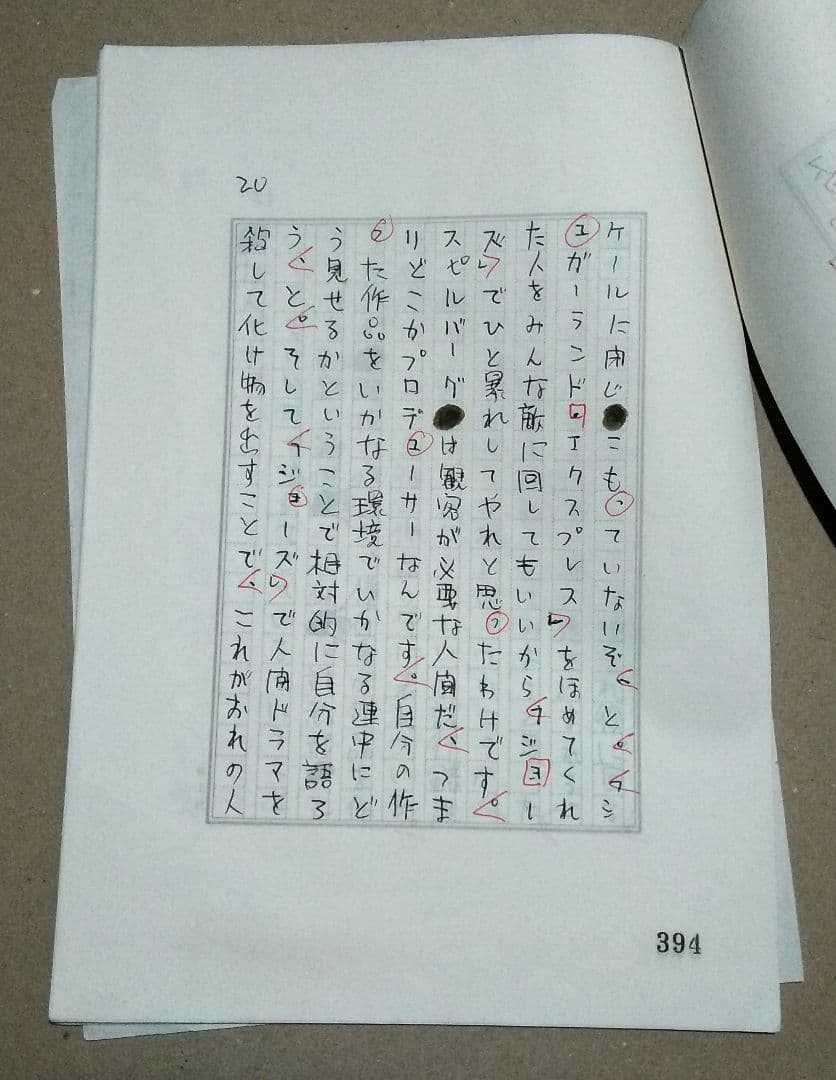 20
ケールに閉じこもっていないぞ、と。『シ
ュガーランド・エクスプレス』をほめてくれ
た人をみんな敵に回してもいいから『ジョー
ズ』でひと暴れしてやれと思ったわけです。
スピルバーグは観客が必要な人間だ、つま
りどこかプロデューサーなんです。自分の作
った作品をいかなる環境でいかなる連中にど
う見せるかということで相対的に自分を語ろ
う、と。そして『ジョーズ』で人間ドラマを
殺して化け物を出すことで、これがおれの人
394